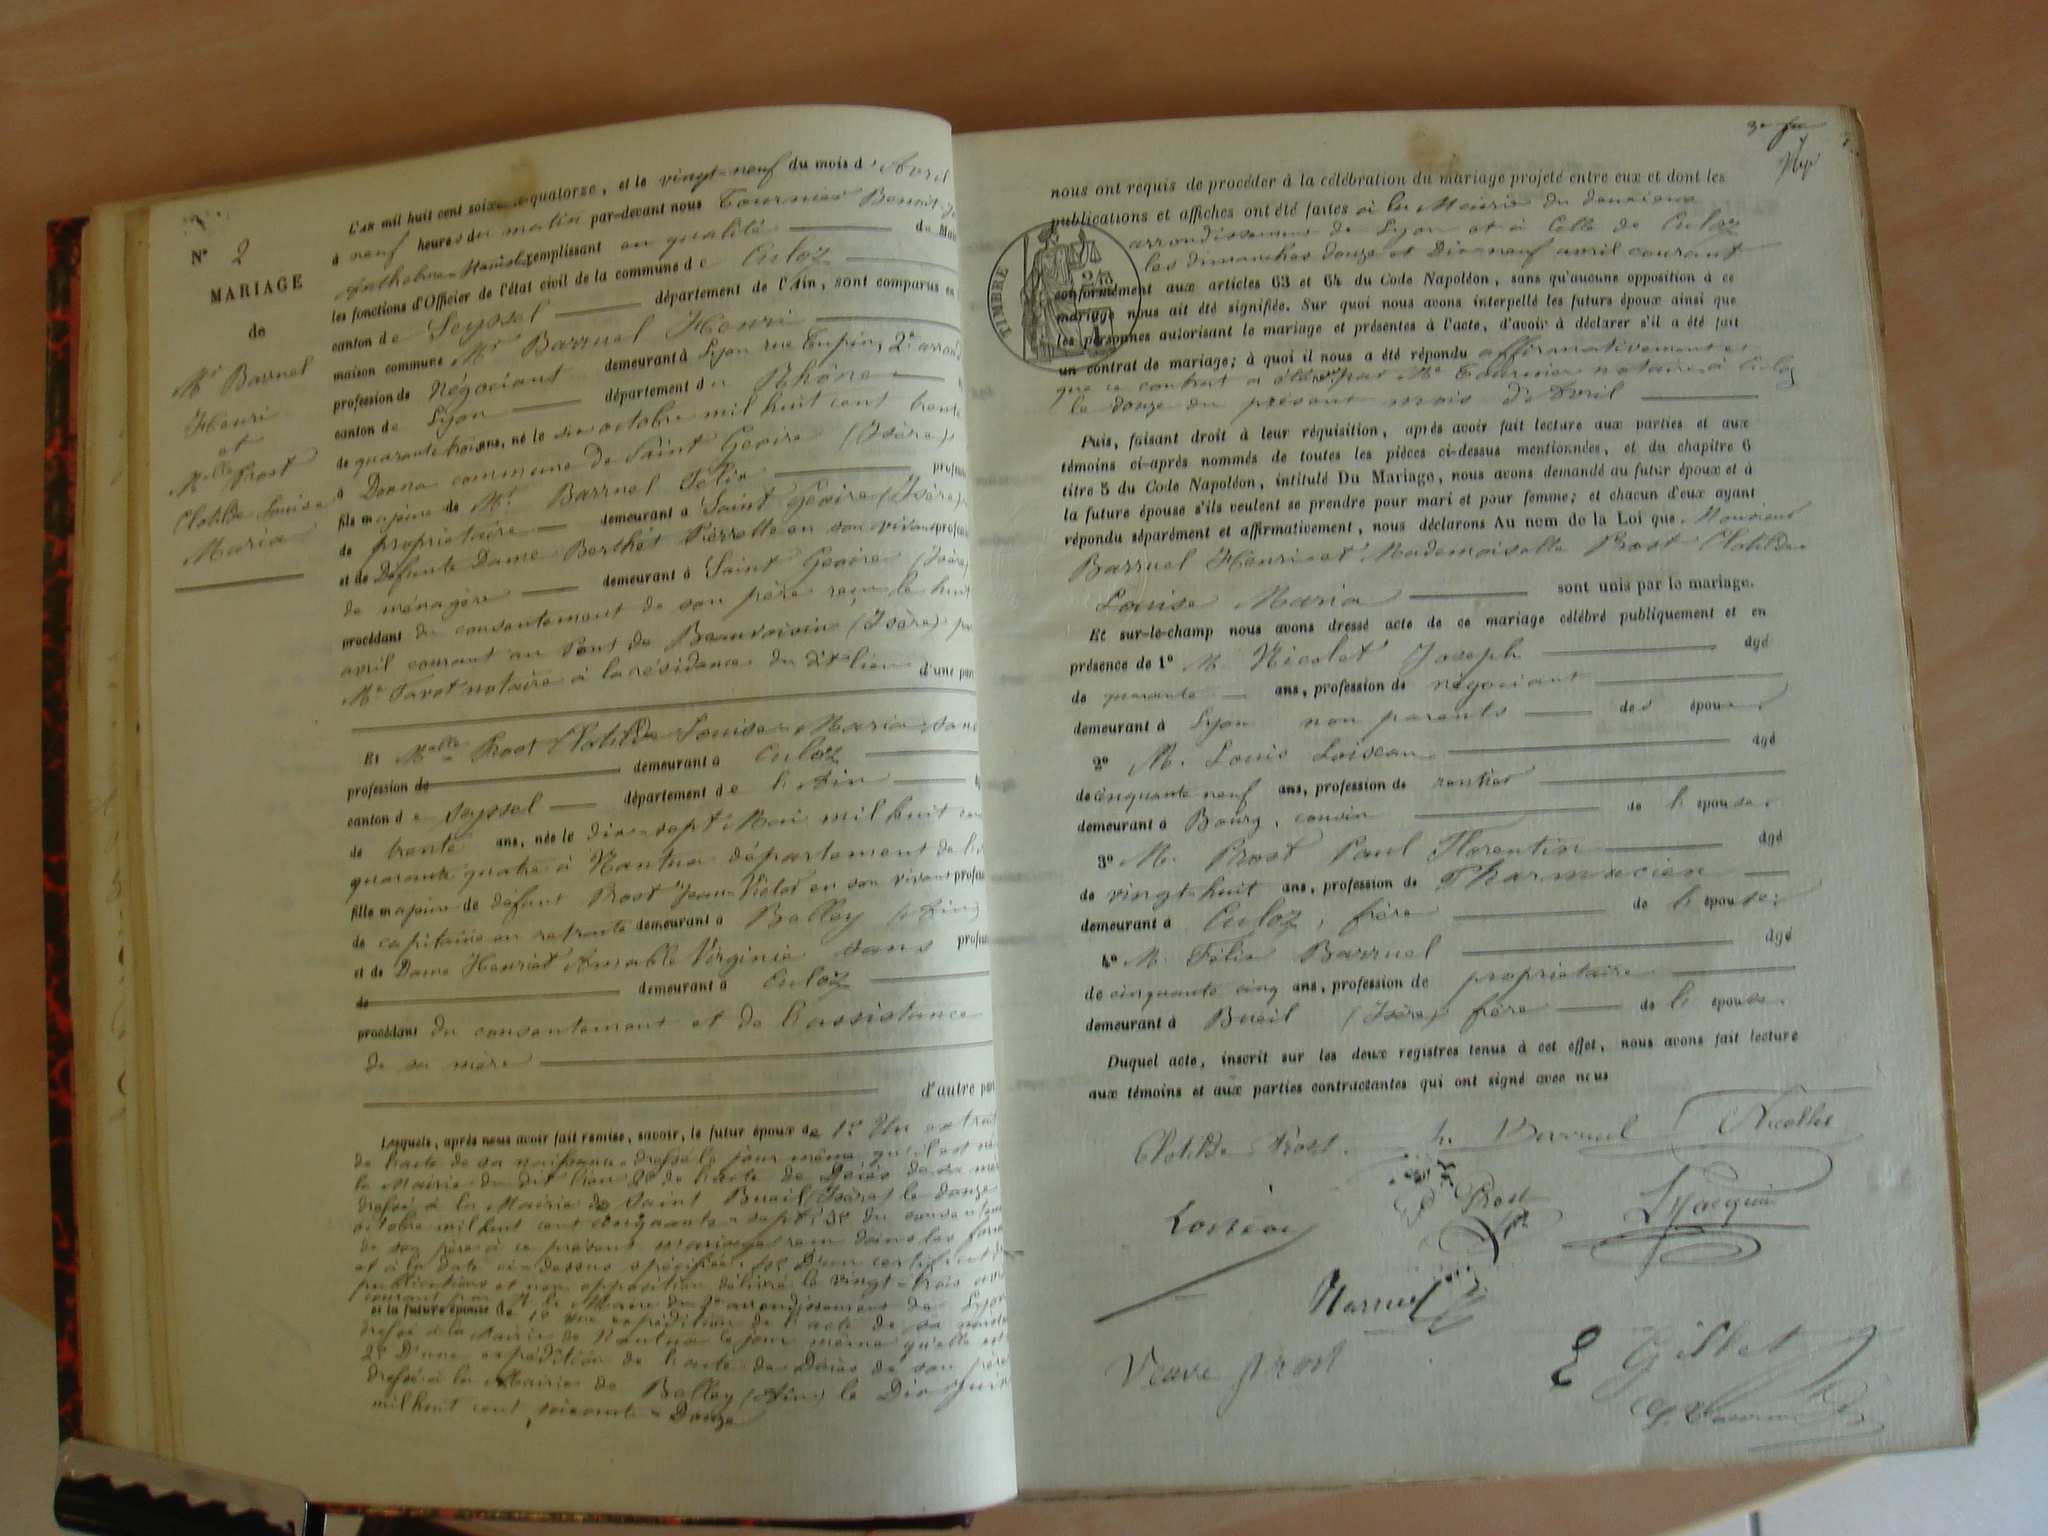 N° 2
MARIAGE
de
Mr Barruel
Henri
et
Melle Prost
Clotilde Louise
Maria
L'an mil huit cent soixante-quatorze, et le vingt-neuf du mois d'Avril
à neuf heures du matin par-devant nous Tournier Benoit
Anthelme Stanislas remplissant en qualité de Maire
les fonctions d'Officier de l'état civil de la commune de Culoz
canton de Seyssel département de l'Ain, sont comparus en
maison commune Mr Barruel Henri
profession de Négociant demeurant à Lyon rue Tupin, 2e arrond
canton de Lyon département du Rhône
de quarante trois ans, né le six octobre mil huit cent trente
à commune de Saint Geoire (Isère)
fils majeur de Mr Barruel Felix profess
de propriétaire demeurant à Saint Geoire (Isère)
et de Défunte Dame Berthet Pierrette en son vivant profess
de ménagère demeurant à Saint Geoire (Isère)
procédant du consentement de son père reçu le huit
avril courant au Pont de Beauvoisin (Isère) par
Me Favot notaire à la résidence du dit lieu d'une part
Et Melle Prost Clotilde Louise Maria sans
profession de demeurant à Culoz
canton de Seyssel département de l'Ain
de trente ans, née le dix-sept Mai mil huit cent
quarante quatre à Nantua département de l'
fille majeure de défunt Prost Jean-Victor en son vivant profess
de capitaine en retraite demeurant à Belley (Ain)
et de Dame Henriet Amable Virginie sans profess
de demeurant à Culoz
procédant du consentement et de l'assistance
de sa mère
d'autre part
Lesquels, après nous avoir fait remise, savoir, le futur époux de 1° Un extrait
de l'acte de sa naissance dressé le jour même qu'il est né
la Mairie du dit lieu 2° de l'acte de Décès de sa mère
dressé à la Mairie de Saint Bueil (Isère) le douze
octobre mil huit cent cinquante-sept 3° du consentement
de son père à ce présent mariage reçu dans les formes
et à la date ci-dessus spécifiée. 4° D'un certificat de
publications et non opposition délivré le vingt-trois avril
courant par M. le Maire du 2e arrondissement de Lyon
et la future épouse de 1° Une expédition de l'acte de sa naissance
dressé à la Mairie de Nantua le jour même qu'elle est
2° D'une expédition de l'acte de Décès de son père
dressé à la Mairie de Belley (Ain) le Dix Juin
mil huit cent soixante-Douze
nous ont requis de procéder à la célébration du mariage projeté entre eux et dont les
publications et affiches ont été faites à la Mairie du deuxième
arrondissement de Lyon et à Celle de Culoz
les dimanches douze et Dix neuf avril courant
TIMBRE
conformément aux articles 63 et 64 du Code Napoléon, sans qu'aucune opposition à ce
mariage nous ait été signifiée. Sur quoi nous avons interpellé les futurs époux ainsi que
les personnes autorisant le mariage et présentes à l'acte, d'avoir à déclarer s'il a été fait
un contrat de mariage; à quoi il nous a été répondu affirmativement et
que ce contrat a été reçu par Me Tournier notaire à Culoz
le douze du présent mois d'Avril
Puis, faisant droit à leur réquisition, après avoir fait lecture aux parties et aux
témoins ci-après nommés de toutes les pièces ci-dessus mentionnées, et du chapitre 6
titre 5 du Code Napoléon, intitulé Du Mariage, nous avons demandé au futur époux et à
la future épouse s'ils veulent se prendre pour mari et pour femme; et chacun d'eux ayant
répondu séparément et affirmativement, nous déclarons Au nom de la Loi que Monsieur
Barruel Henri et Mademoiselle Prost Clotilde
Louise Maria sont unis par le mariage.
Et sur-le-champ nous avons dressé acte de ce mariage célébré publiquement et en
présence de 1° M. Nicolet Joseph âgé
de quarante ans, profession de négociant
demeurant à Lyon non parents des époux
2° M. Louis Loiseau âgé
de cinquante neuf ans, profession de rentier
demeurant à Bourg, cousin de l'épouse.
3° M. Prost Paul Florentin âgé
de vingt-huit ans, profession de Pharmacien
demeurant à Culoz, frère de l'épouse;
4° M. Félix Barruel âgé
de cinquante cinq ans, profession de propriétaire
demeurant à Bueil (Isère) frère de l'épouse.
Duquel acte, inscrit sur les deux registres tenus à cet effet, nous avons fait lecture
aux témoins et aux parties contractantes qui ont signé avec nous
Clotilde Prost. h. Barruel Nicollet
Loiseau P Prost Jacquin
Barruel
Veuve prost E Gillet